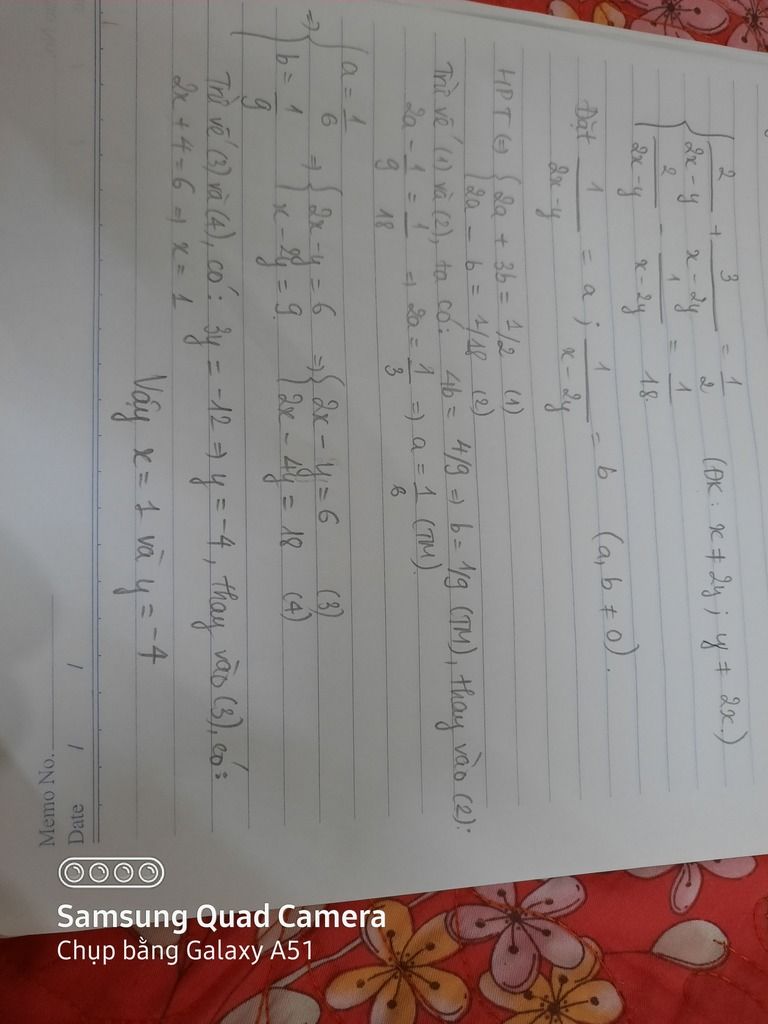 { 2/(2x-y) + 3/(x-2y) = 1/2 (ĐK: x ≠ 2y; y ≠ 2x.)
{ 2/(2x-y) - 1/(x-2y) = 1/18.
Đặt 1/(2x-y) = a; 1/(x-2y) = b (a, b ≠ 0).
HPT (=) { 2a + 3b = 1/2 (1)
{ 2a - b = 1/18 (2)
Trừ vế (1) và (2), ta có: 4b = 4/9 => b = 1/9 (TM), thay vào (2):
2a - 1/9 = 1/18 => 2a = 1/3 => a = 1/6 (TM).
=> { a = 1/6 => { 2x - y = 6 => { 2x - y = 6 (3)
{ b = 1/9 { x - 2y = 9. { 2x - 4y = 18 (4)
Trừ vế (3) và (4), có: 3y = -12 => y = -4, thay vào (3), có:
2x + 4 = 6 => x = 1
Vậy x = 1 và y = -4
Memo No.
Date / /
Samsung Quad Camera
Chụp bằng Galaxy A51